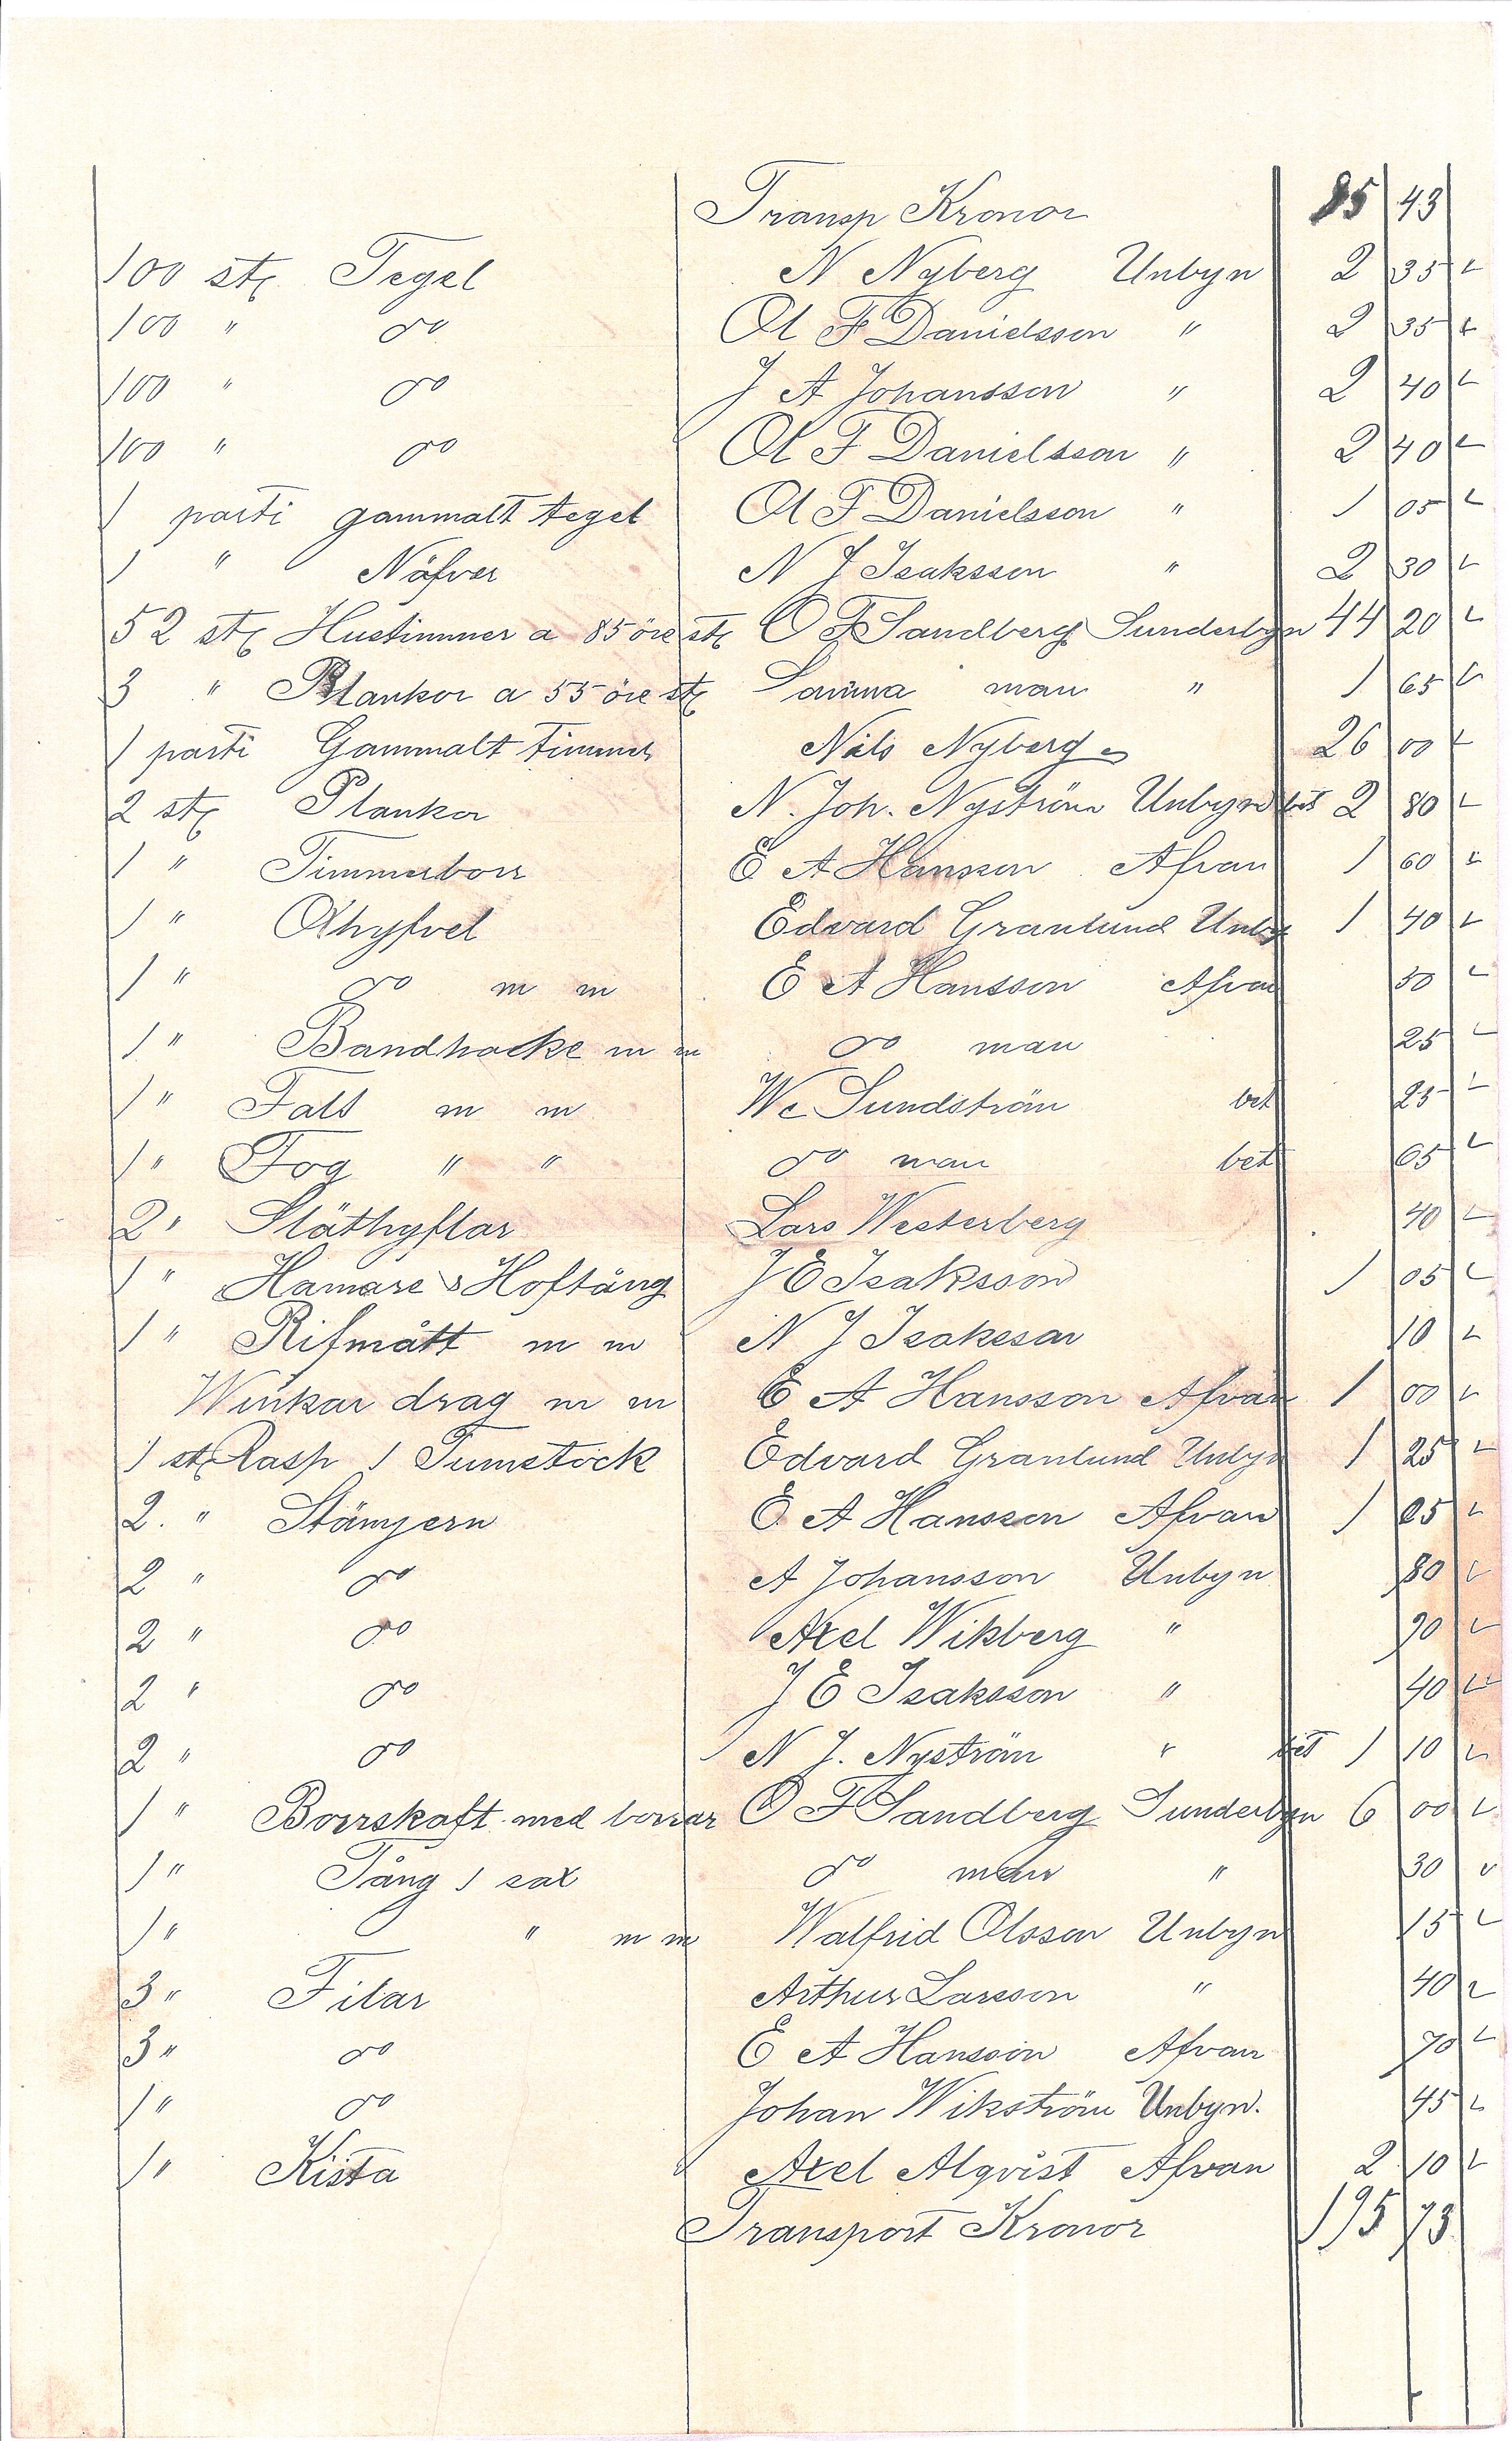 Transp Kronor 85 43
100 st Tegel N Nyberg Unbyn 2 35
100 " do Ol F Danielsson " 2 35
100 " do J A Johansson " 2 40
100 " do Ol F Danielsson " 2 40
1 parti gammalt tegel Ol F Danielsson " 1 05
1 " Näfver N J Isaksson " 2 30
52 st Hustimmer a 85 öre st O F Sandberg Sunderbyn 44 20
3 " Plankor a 55 öre st Samma man " 1 65
1 parti Gammalt timmer Nils Nyberg 26 00
2 st Plankor N. Joh. Nyström Unbyn bet 2 80
1 " Timmerborr E A Hansson Afvan 1 60
1 " Oxhyfvel Edvard Granlund Unby 1 40
1 " do m m E A Hansson Afvan 50
1 " Bandhacke m m do man 25
1 " Fals m m W Sundström bet 25
1 " Fog " " do man bet 65
2 " Släthyflar Lars Westerberg 40
1 " Hamare & Hoftång J E Isaksson 1 05
1 " Rifmått m m N J Isaksson 10
Winkar drag m m E A Hansson Afvan 1 00
1 st Rasp 1 Tumstock Edvard Granlund Unbyn 1 25
2. " Stämjern E A Hansson Afvan 1 05
2 " do A Johansson Unbyn 80
2 " do Axel Wikberg " 90
2 " do J E Isaksson " 40
2 " do N J. Nyström " bet 1 10
1 " Borrskaft med borrar O F Sandberg Sunderbyn 6 00
1 " Tång 1 sax do man " 30
1 " " m m Walfrid Olsson Unbyn 15
3 " Filar Arthur Larsson " 40
3 " do E A Hansson Afvan 70
1 " do Johan Wikström Unbyn. 45
1 " Kista Axel Alqvist Afvan 2 10
Transport Kronor 195 73